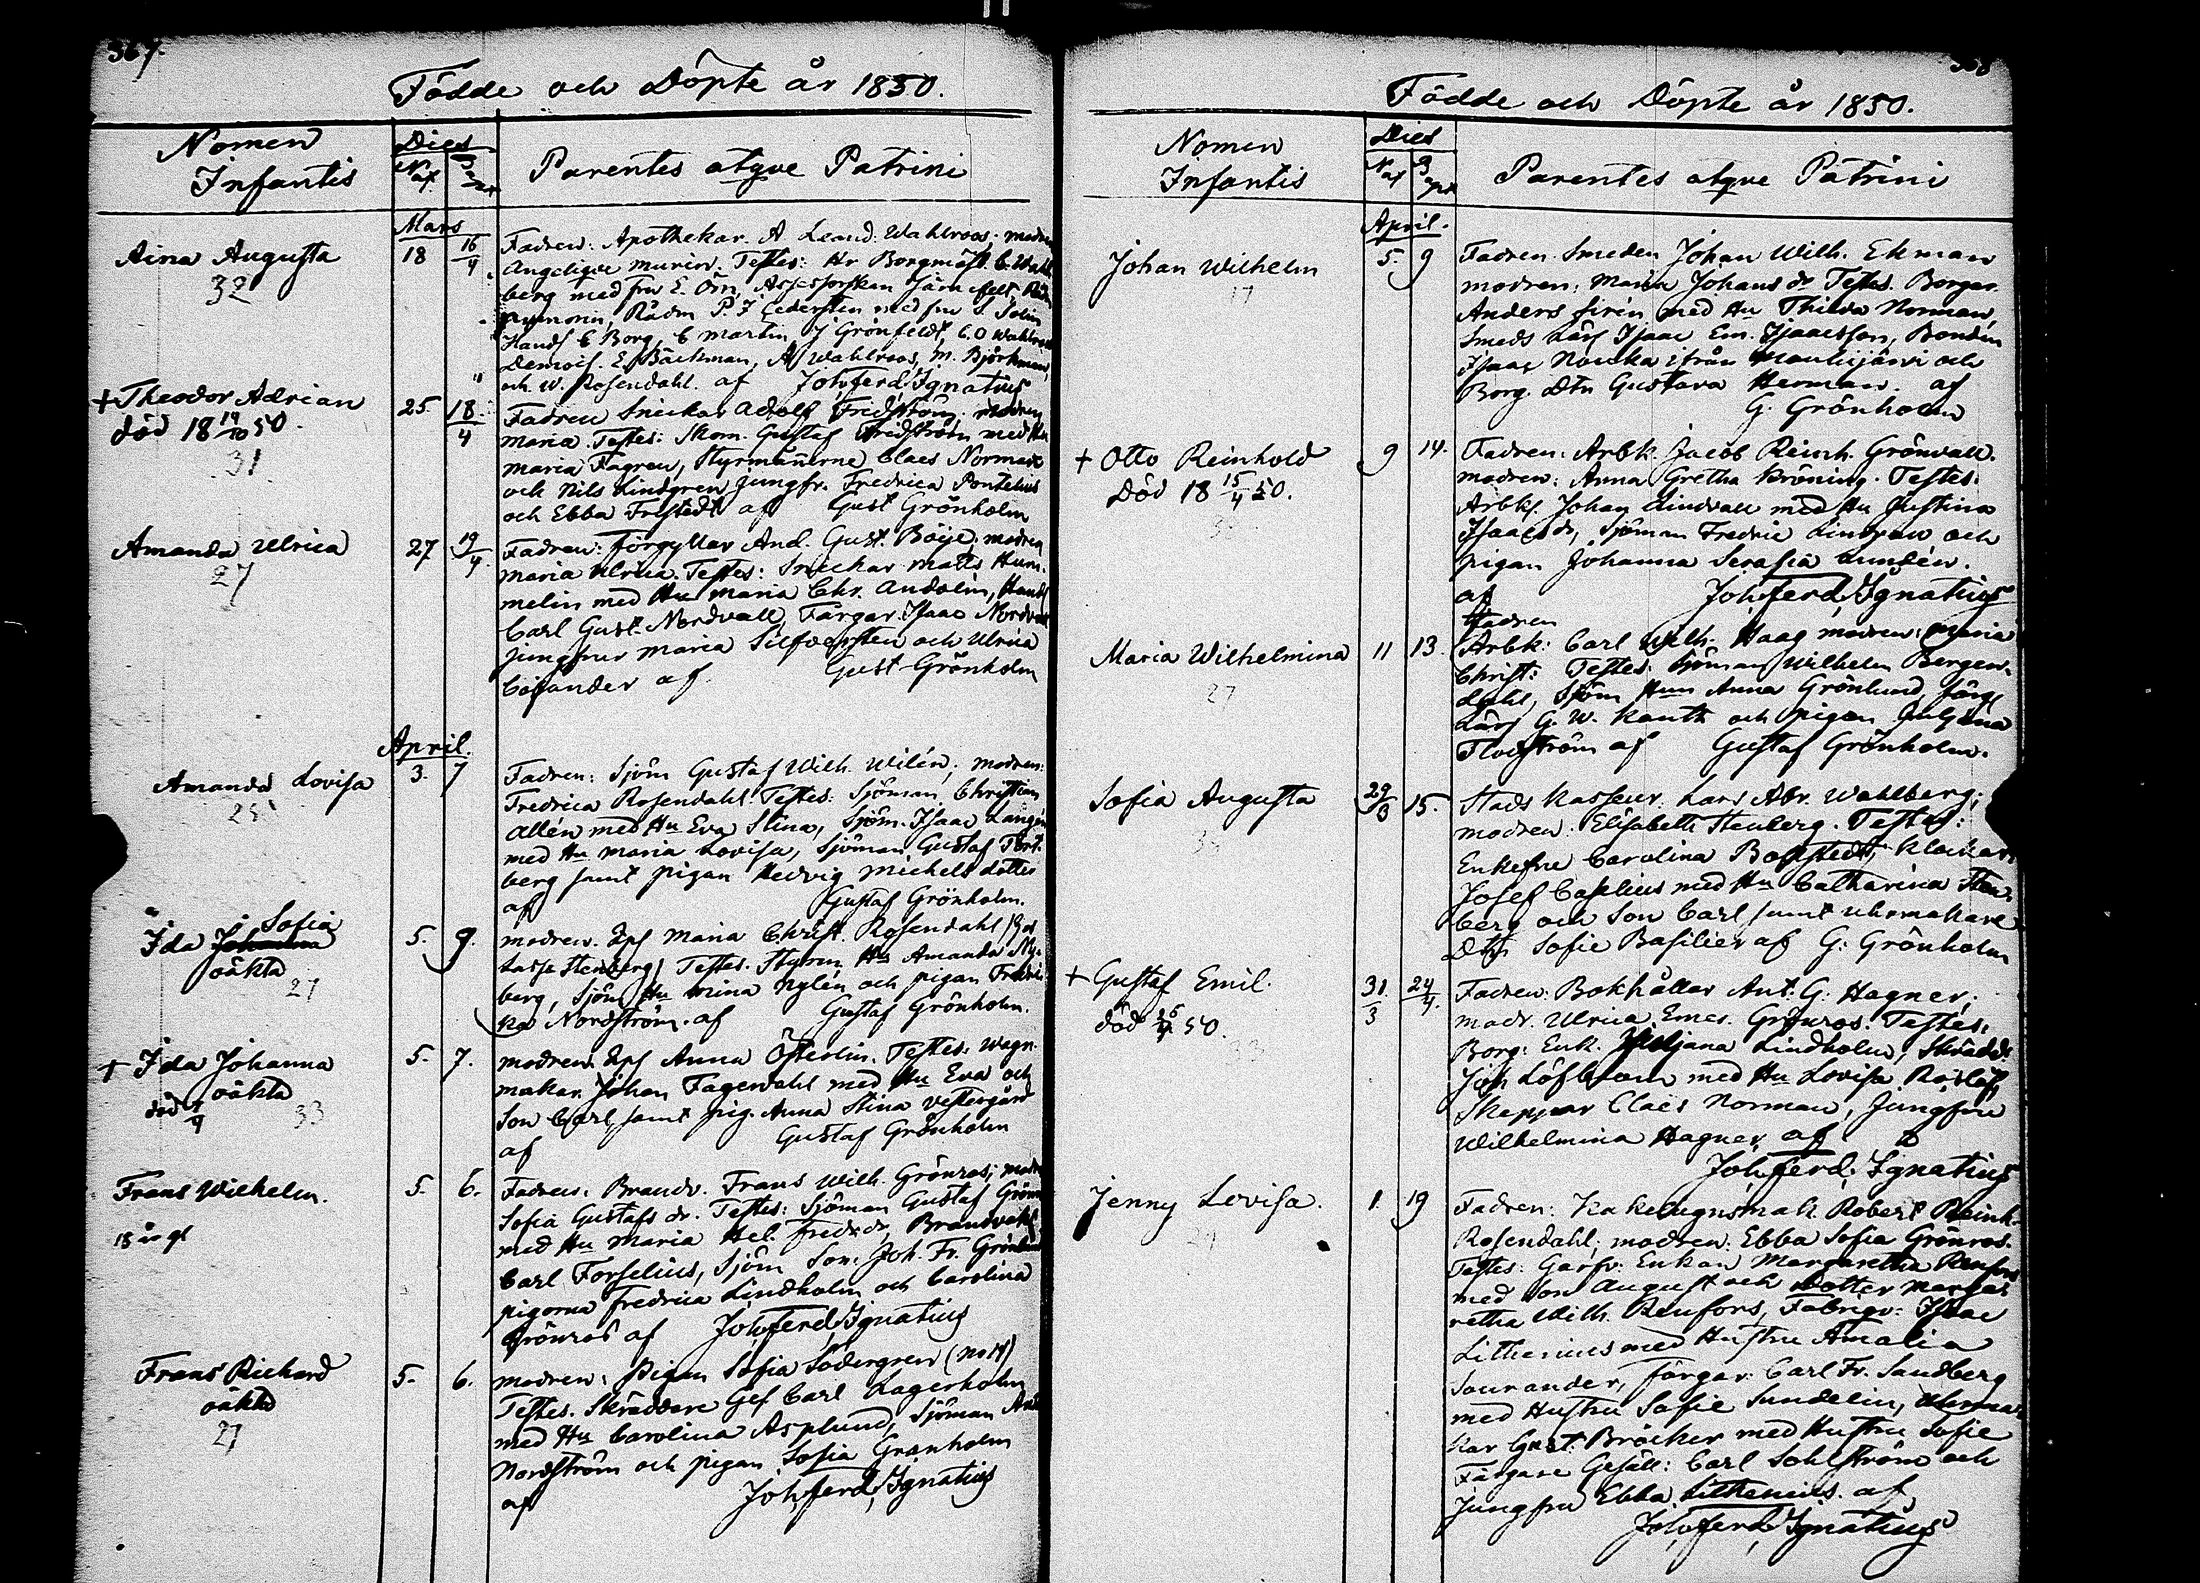 367.
Födde och Döpte år 1850.
Nomen
Infantis
Dies
Nat
Parentes atqve Patrini
Mars
Aina Augusta
32
18 16/4
Fadren: Apothekar. A Leand: Wahlroos; modren
Angeliqve Testes: Hr Borgmäst.
berg med fru E.
Rådm P. J. Cedersten med fru
Handl C Borg, C Martin, J Grönfeldt, C. O Wahlroos
Demois. E. Bäckman, A Wahlroos, M. Björkman,
och W. Rosendahl. af Joh. Ferd. Ignatius
+ Theodor Adrian
död 18 19/10 50.
31
25. 18/4
Fadren Snickar Adolf Fridström. modren
Maria. Testes: Skom. Gustaf Fridström med Hu
Maria Fagren, Styrmänerne Claes Norman
och Nils Lindgren Jungfr. Fredrica Pontelius
och Ebba af Gust Grönholm
Amanda Ulrica
27
27 19/4
Fadren: Förgyllar And. Gust. Böije; modren
Maria Ulrica. Testes: Snickar Matts Hum-
melin med Hu Maria Chr. Andelin, Handl
Carl Gust. Nordvall, Färgar Isaac Nordvall
jungfrur Maria Silfversten och Ulrica
Cajander af Gust Grönholm
April.
Amanda Lovisa
25
3. 7
Fadren: Sjöm Gustaf Wilh. Wilén; modren:
Fredrica Rosendahl. Testes: Sjöman Christian
Allén med Hu Eva Stina, Sjöm. Isaac Langén
med Hu Maria Lovisa, Sjöman Gustaf
berg samt pigan Hedvig Michelsdotter
af Gustaf Grönholm.
Sofia
Ida Johanna
oäkta
27
5. 9.
modren. Maria Christ. Rosendahl
Stenberg) Testes. Styrm Hu Amanda
berg, Sjöm Hu Mina Nylén och pigan Fredri-
ka Nordström. af Gustaf Grönholm.
+ Ida Johanna
oäkta
33
5. 7.
modren. Anna Österlin. Testes: Wagn-
makar. Johan Fagerdahl med Hu Eva och
Son Carl, samt pig. Anna Stina Vestergård
af Gustaf Grönholm
Frans Wilhelm.
18 år gl
5. 6.
Fadren: Brandv. Frans Wilh. Grönros; modr
Sofia Gustafs dr. Testes: Sjöman Gustaf
med Hu Maria Hel. Fredr dr, Brandvakt
Carl Forselius, Sjöm Son: Joh. Fr.
pigorna Fredrica Lindholm och Carolina
Grönros af Joh. Ferd. Ignatius
Frans Richard
oäkta
27
5. 6.
modren: Pigan Sofia Södergren
Testes. Skräddare Ges Carl Lagerholm
med Hu Carolina Asplund, Sjöman
Nordström och pigan Sofia Granholm
af Joh. Ferd. Ignatius
368
Födde och Döpte år 1850.
Nomen
Infantis
Dies
Nat
Parentes atqve Patrini
April.
Johan Wilhelm
5. 9
Fadren. Smeden Johan Wilh. Ekman
modren: Maria Johans dr Testes. Borgar.
Anders Sirén med Hu Norman,
Smeds Lärl Isaac Em. Isaacsson, Bonden
Isaac Nauska ifrån och
Borg. Dtr Gustava Herman. af
G. Grönholm
+ Otto Reinhold
Död 18 15/4 50.
9 14.
Fadren: Arbk. Jacob Reinh. Grönvall.
modren: Anna Gretha Bröning. Testes:
Arbk. Johan Lindvall med Hu Justina
Isaacs dr, Sjöman Fredric Lindgren och
pigan Johanna Serafia Lundén.
af Joh. Ferd. Ignatius
Fadren
Maria Wilhelmina
27
11 13.
Arbk: Carl Wilh. Haag modren: Maria
Christ: Testes: Sjöman Wilhelm Bergen-
dahl, Sjöm Hun Anna Grönlund,
Lärl G. W. Kanth och pigan Juljana
Flodström af Gustaf Grönholm.
Sofia Augusta
29/3 15.
Stads Kasseur. Lars Abr. Wahlberg;
modren. Elisabeth Stenberg. Testes:
Enkefru Carolina Klockar
Josef Caselius med Hu Catharina Sten-
berg och Son Carl samt uhrmakare
Dtr Sofie Basilier af G: Grönholm
+ Gustaf Emil.
33
31/3 24/4.
Fadren: Bokhållar Ant: G: Hagner;
modr. Ulrica Emer. Grönros. Testes:
Borg: Enk. Juljana Lindholm, Skrädd:
Joh Löfbom med Hu Lovisa
Skeppar Claës Norman, Jungfru
Wilhelmina Hagner af
Joh. Ferd. Ignatius
Jenny Lovisa.
1. 19
Fadren: Kakelugnsmak. Robert Reinh.
Rosendahl; modren. Ebba Sofia Grönros.
Testes: Garfv: Enkan Margaretha Renfors
med Son August och Dotter Marga-
retha Wilh. Renfors, Fabriqv: Isaac
Lithenius med Hustru Amalia
Saurander, Färgar: Carl Fr. Sandberg
med Hustru Sofie Sundelin, Uhrma-
kar Gust: Bröcker med Hustru Sofie
Färgare Gesäll: Carl Sohlström och
Jungfru Ebba Lithenius. af
Joh. Ferd. Ignatius